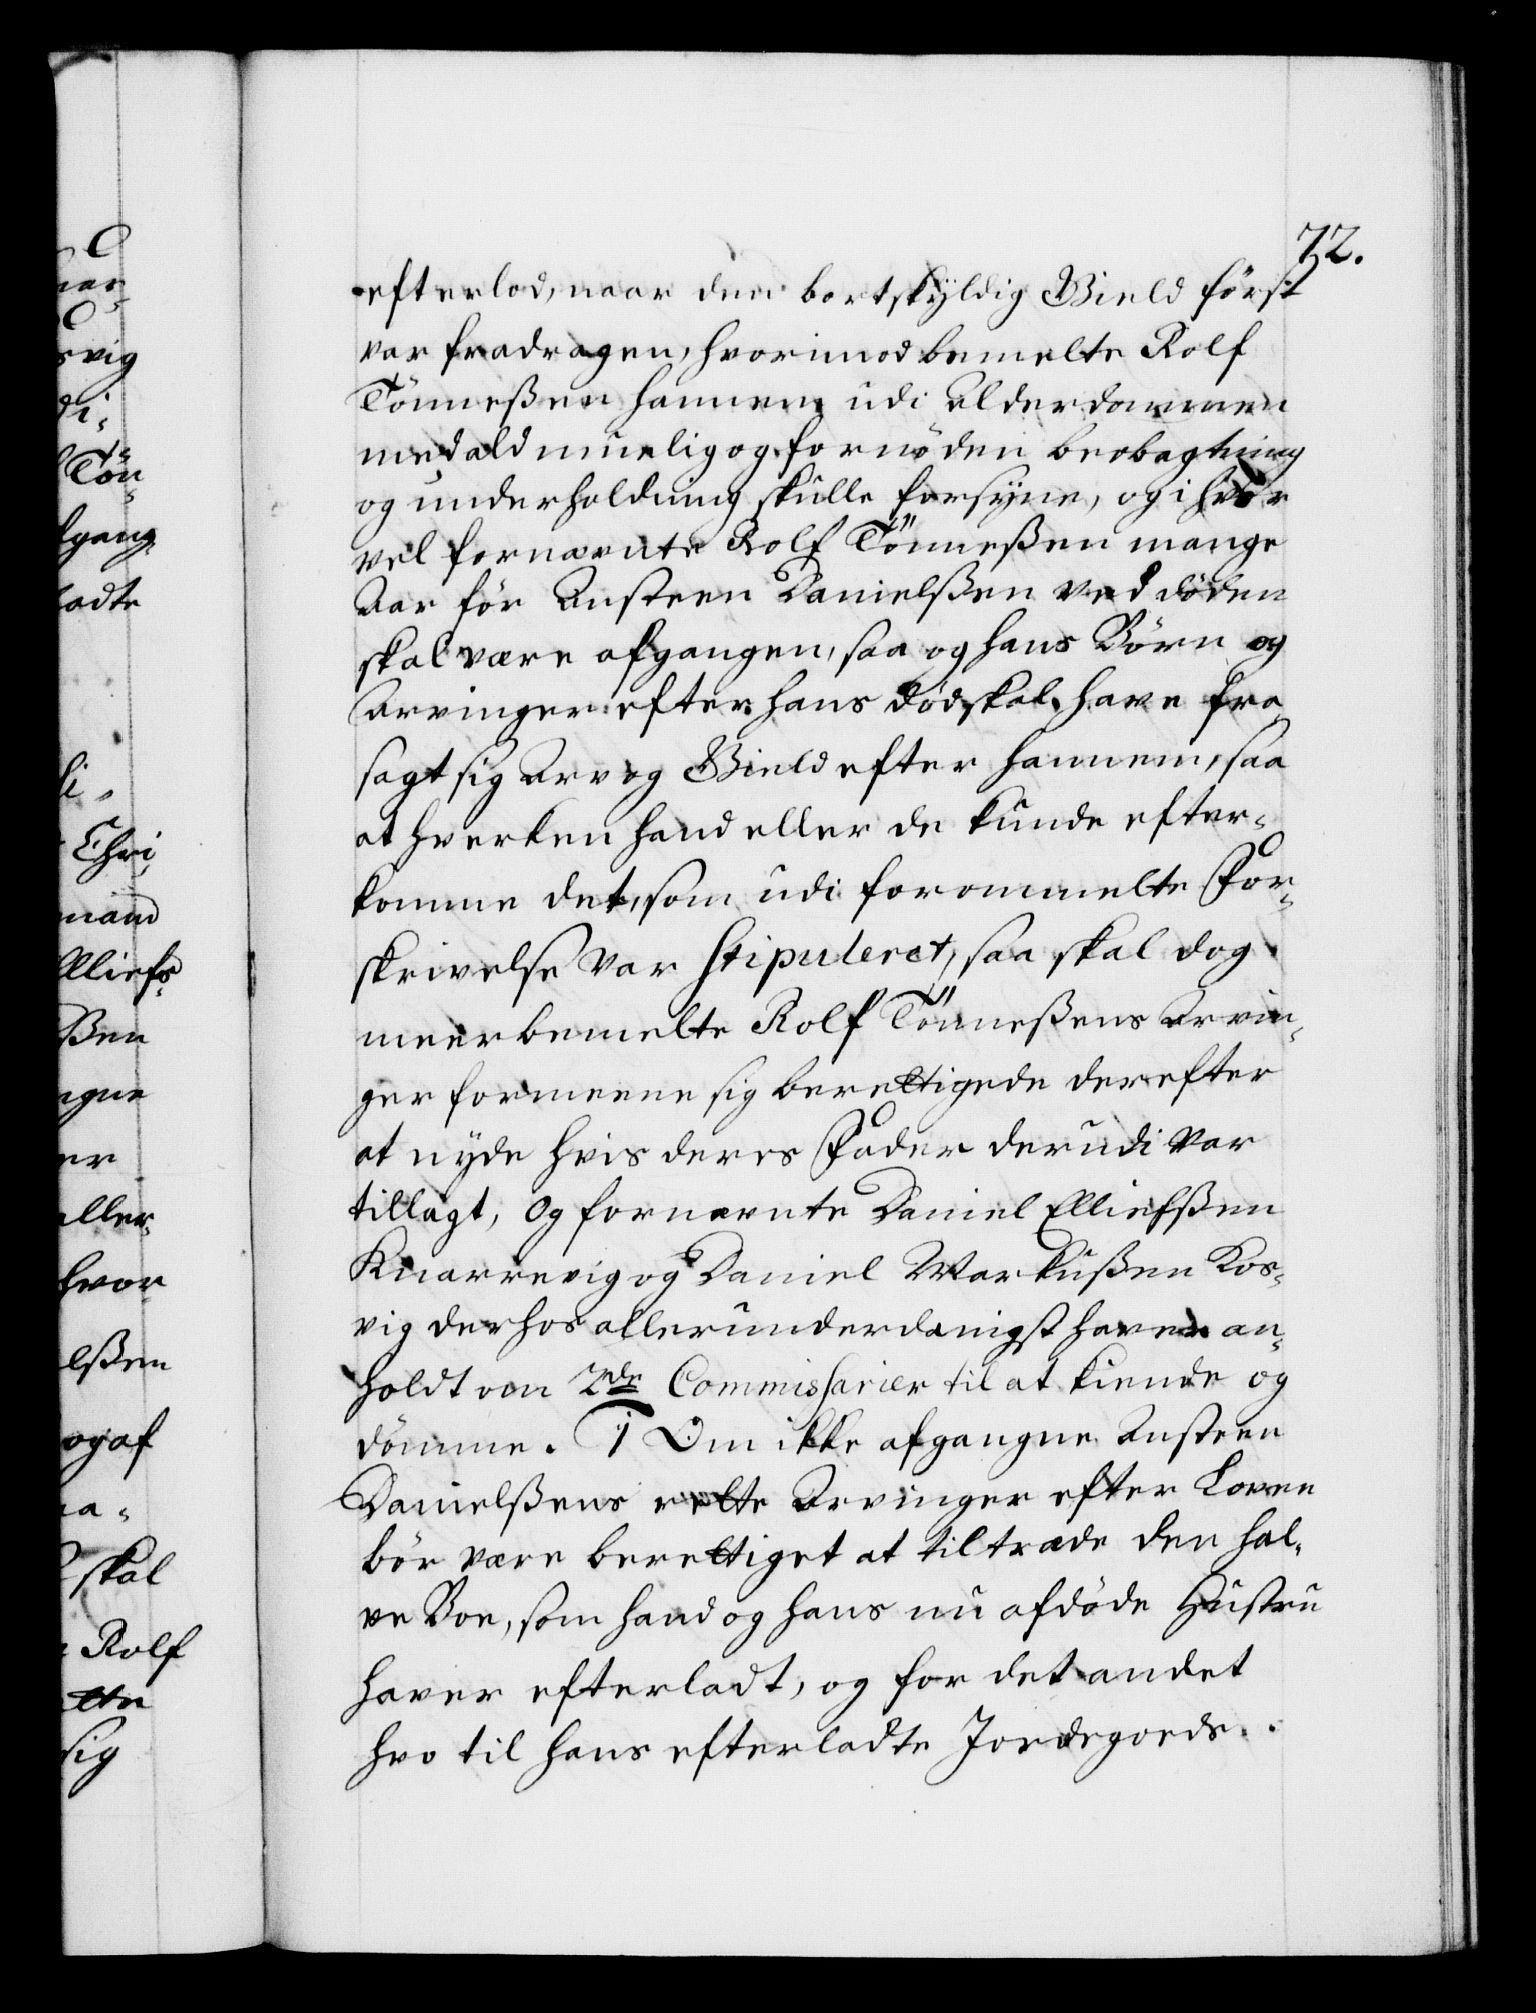 72.
efterlod, naar den bortskÿldig Gield först
var fradragen, hvorimod bemelte Rolf
Tönneßen hannem udi Alderdommen
med ald muelig og fornöden beobagtning
og underholdning skulle forsÿne, og i hvor
vel fornævnte Rolf Tönneßen mange
Aar för Ansteen Danielßen ved döden
skal være afgangen, saa og hans Börn og
Arvinger efter hans död skal have fra
sagt sig Arv og Gield efter hannem, saa
at hverken hand eller de kunde efter-
komme det, som udi forommelte For-
skrivelse var stipuleret, saa skal dog
meerbemelte Rolf Tönneßens Arvin-
ger formeene sig berettigede derefter
at nÿde hvis deres Fader derudi var
tillagt, Og fornævnte Daniel Elliefsßen
Knarrevig og Daniel Markußen Kos-
vig derhos allerunderdanigst haver an-
holdt om 2de Commissarier til at kiende og
dömme. 1 Om ikke afgangne Ansteen
Danielßens rette Arvinger efter Loven
bör være berettiget at tiltræde den hal-
ve Boe, som hand og hans nu afdöde Hustru
haver efterladt, og for det andet
hvo til hans efterladte Jordegoeds
nar-
svig
di-
Tön-
gang
ladte
li-
Chri-
mand
lliefs-
ßen
ngne
er
aller-
hvor
elßen
og af
na-
skal
Rolf
ette
sig